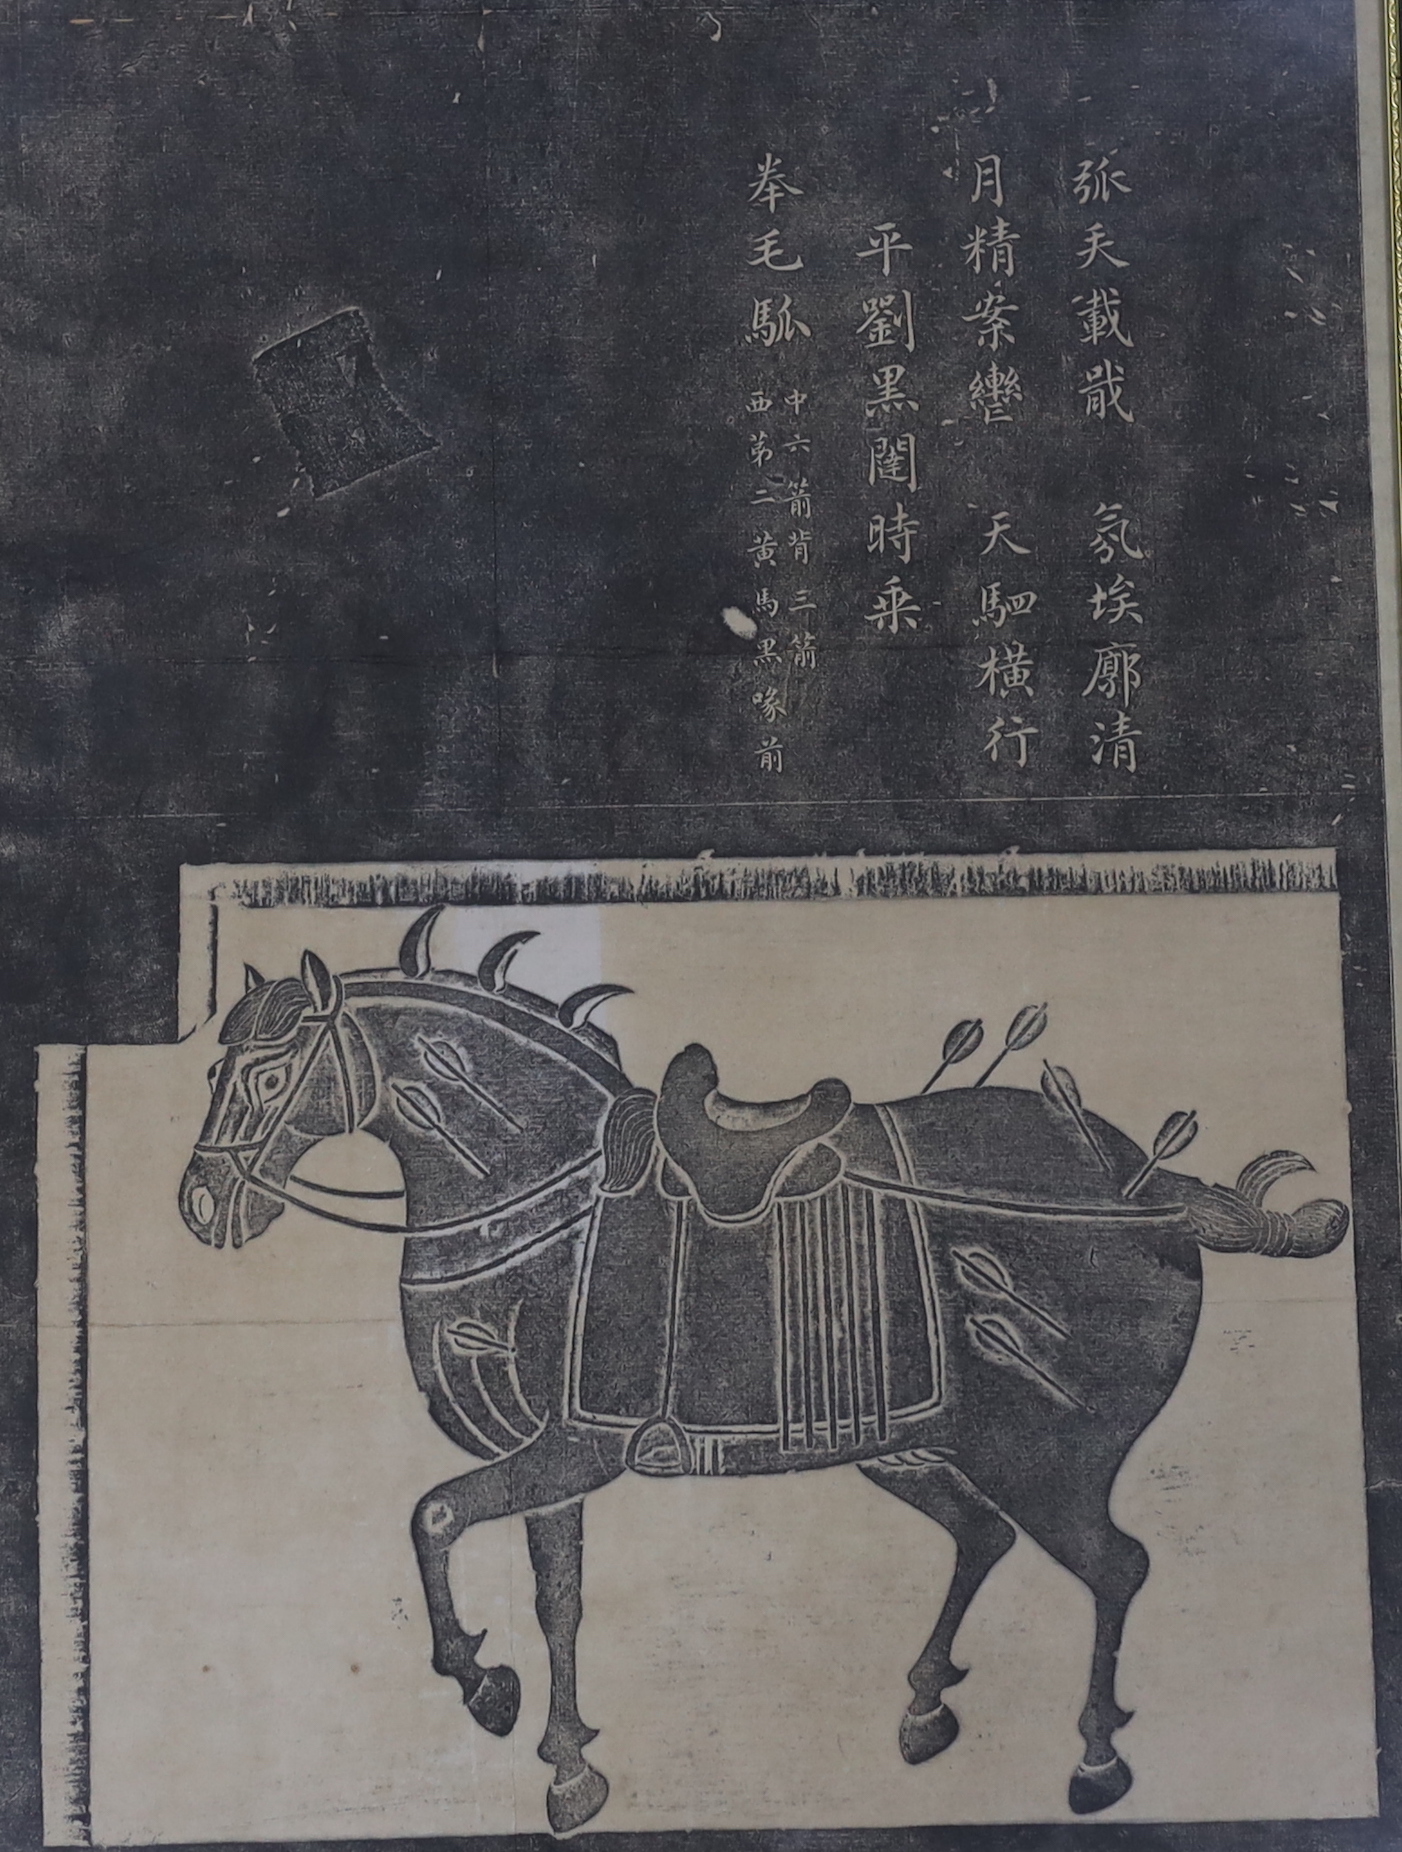 拳毛騧
西第二黃馬黑喙前
中六箭背三箭
平劉黑闥時乘
月精案轡 天駟橫行
弧矢載戢 氛埃廓清